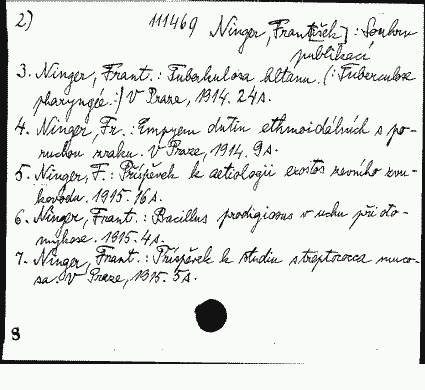 2) 111469 Ninger, Frant[išek] : Soubor
publikací
3. Ninger, Frant.: Tuberkulosa hltanu. (: Tuberculose
pharyngée :) V Praze, 1914. 24 s.
4. Ninger, Fr.: Empyem dutin ethmoidálních s po-
ruchou zraku. V Praze, 1914. 9 s.
5. Ninger, F.: Příspěvek k aetiologii exostos zevního zvu-
kovodu. 1915. 16 s.
6. Ninger, Frant.: Bacillus prodigiosus v uchu při oto-
mykose. 1915. 4 s.
7. Ninger, Frant.: Příspěvek k studiu streptococca muco-
sa. V Praze, 1915. 5 s.
8